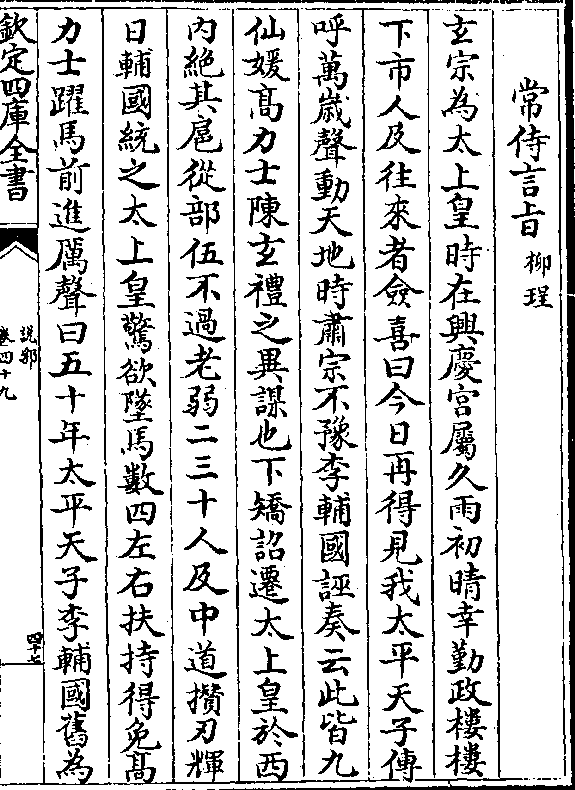 常侍言旨 柳珵
玄宗為太上皇時在興慶宫屬久雨初晴幸勤政樓樓
下市人及往來者僉喜曰今日再得見我太平天子傳
呼萬歲聲動天地時肅宗不豫李輔國誣奏云此皆九
仙媛髙力士陳玄禮之異謀也下矯詔遷太上皇於西
内絶其扈從部伍不過老弱二三十人及中道攢刃輝
日輔國統之太上皇驚欲墜馬數四左右扶持得免髙
力士躍馬前進厲聲曰五十年太平天子李輔國舊為
欽定四庫全書
説郛
卷四十九
四十七